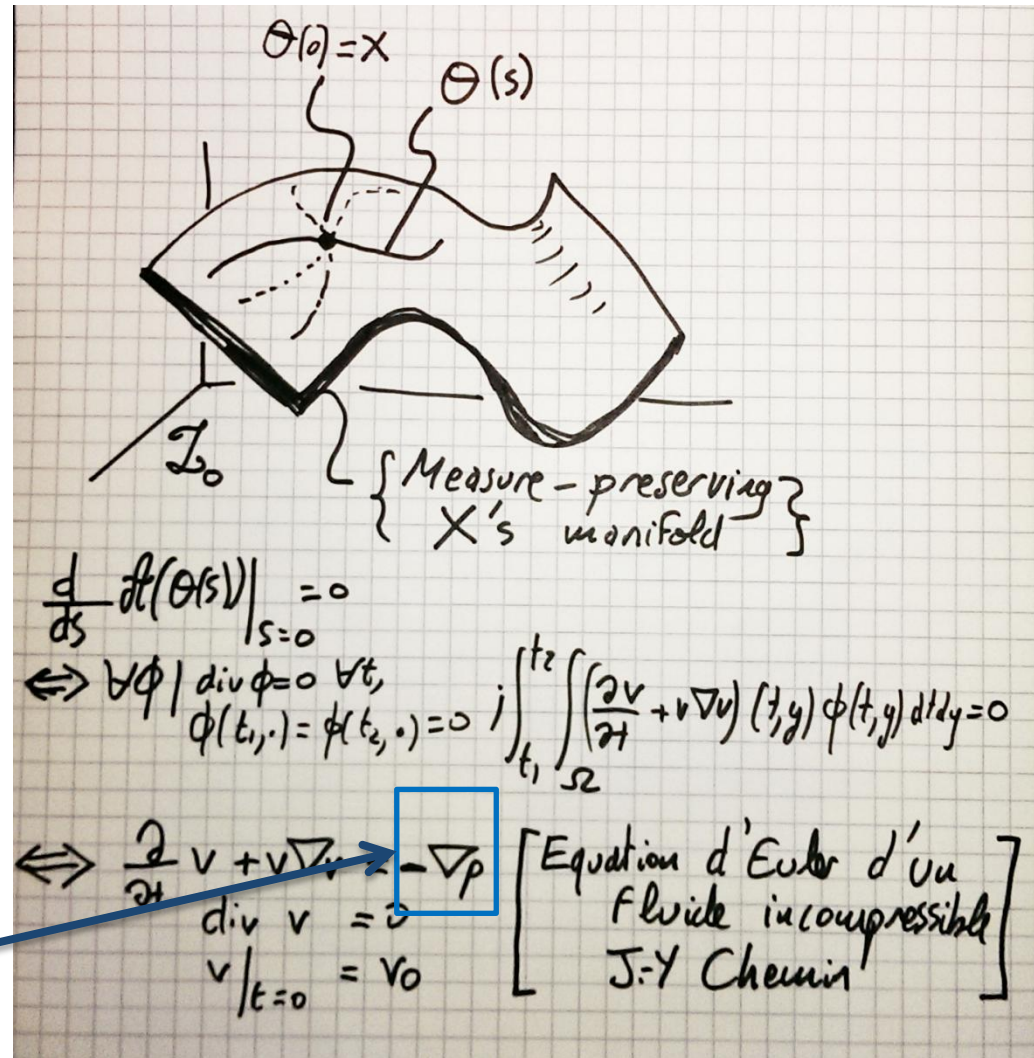 θ(0)=X
θ(s)
I₀
{Measure-preserving
X's manifold}
d/ds A(θ(s))|s=0 = 0
⇔ ∀ϕ | div ϕ=0 ∀t,
ϕ(t₁,.) = ϕ(t₂,.) = 0 ; ∫t₁^t₂ ∫Ω (∂v/∂t + v∇v) (t,y) ϕ(t,y) dtdy=0
⇔ ∂/∂t v + v∇v = -∇p [Equation d'Euler d'un
div v = 0 fluide incompressible
v|t=0 = v₀ J.-Y Chemin]